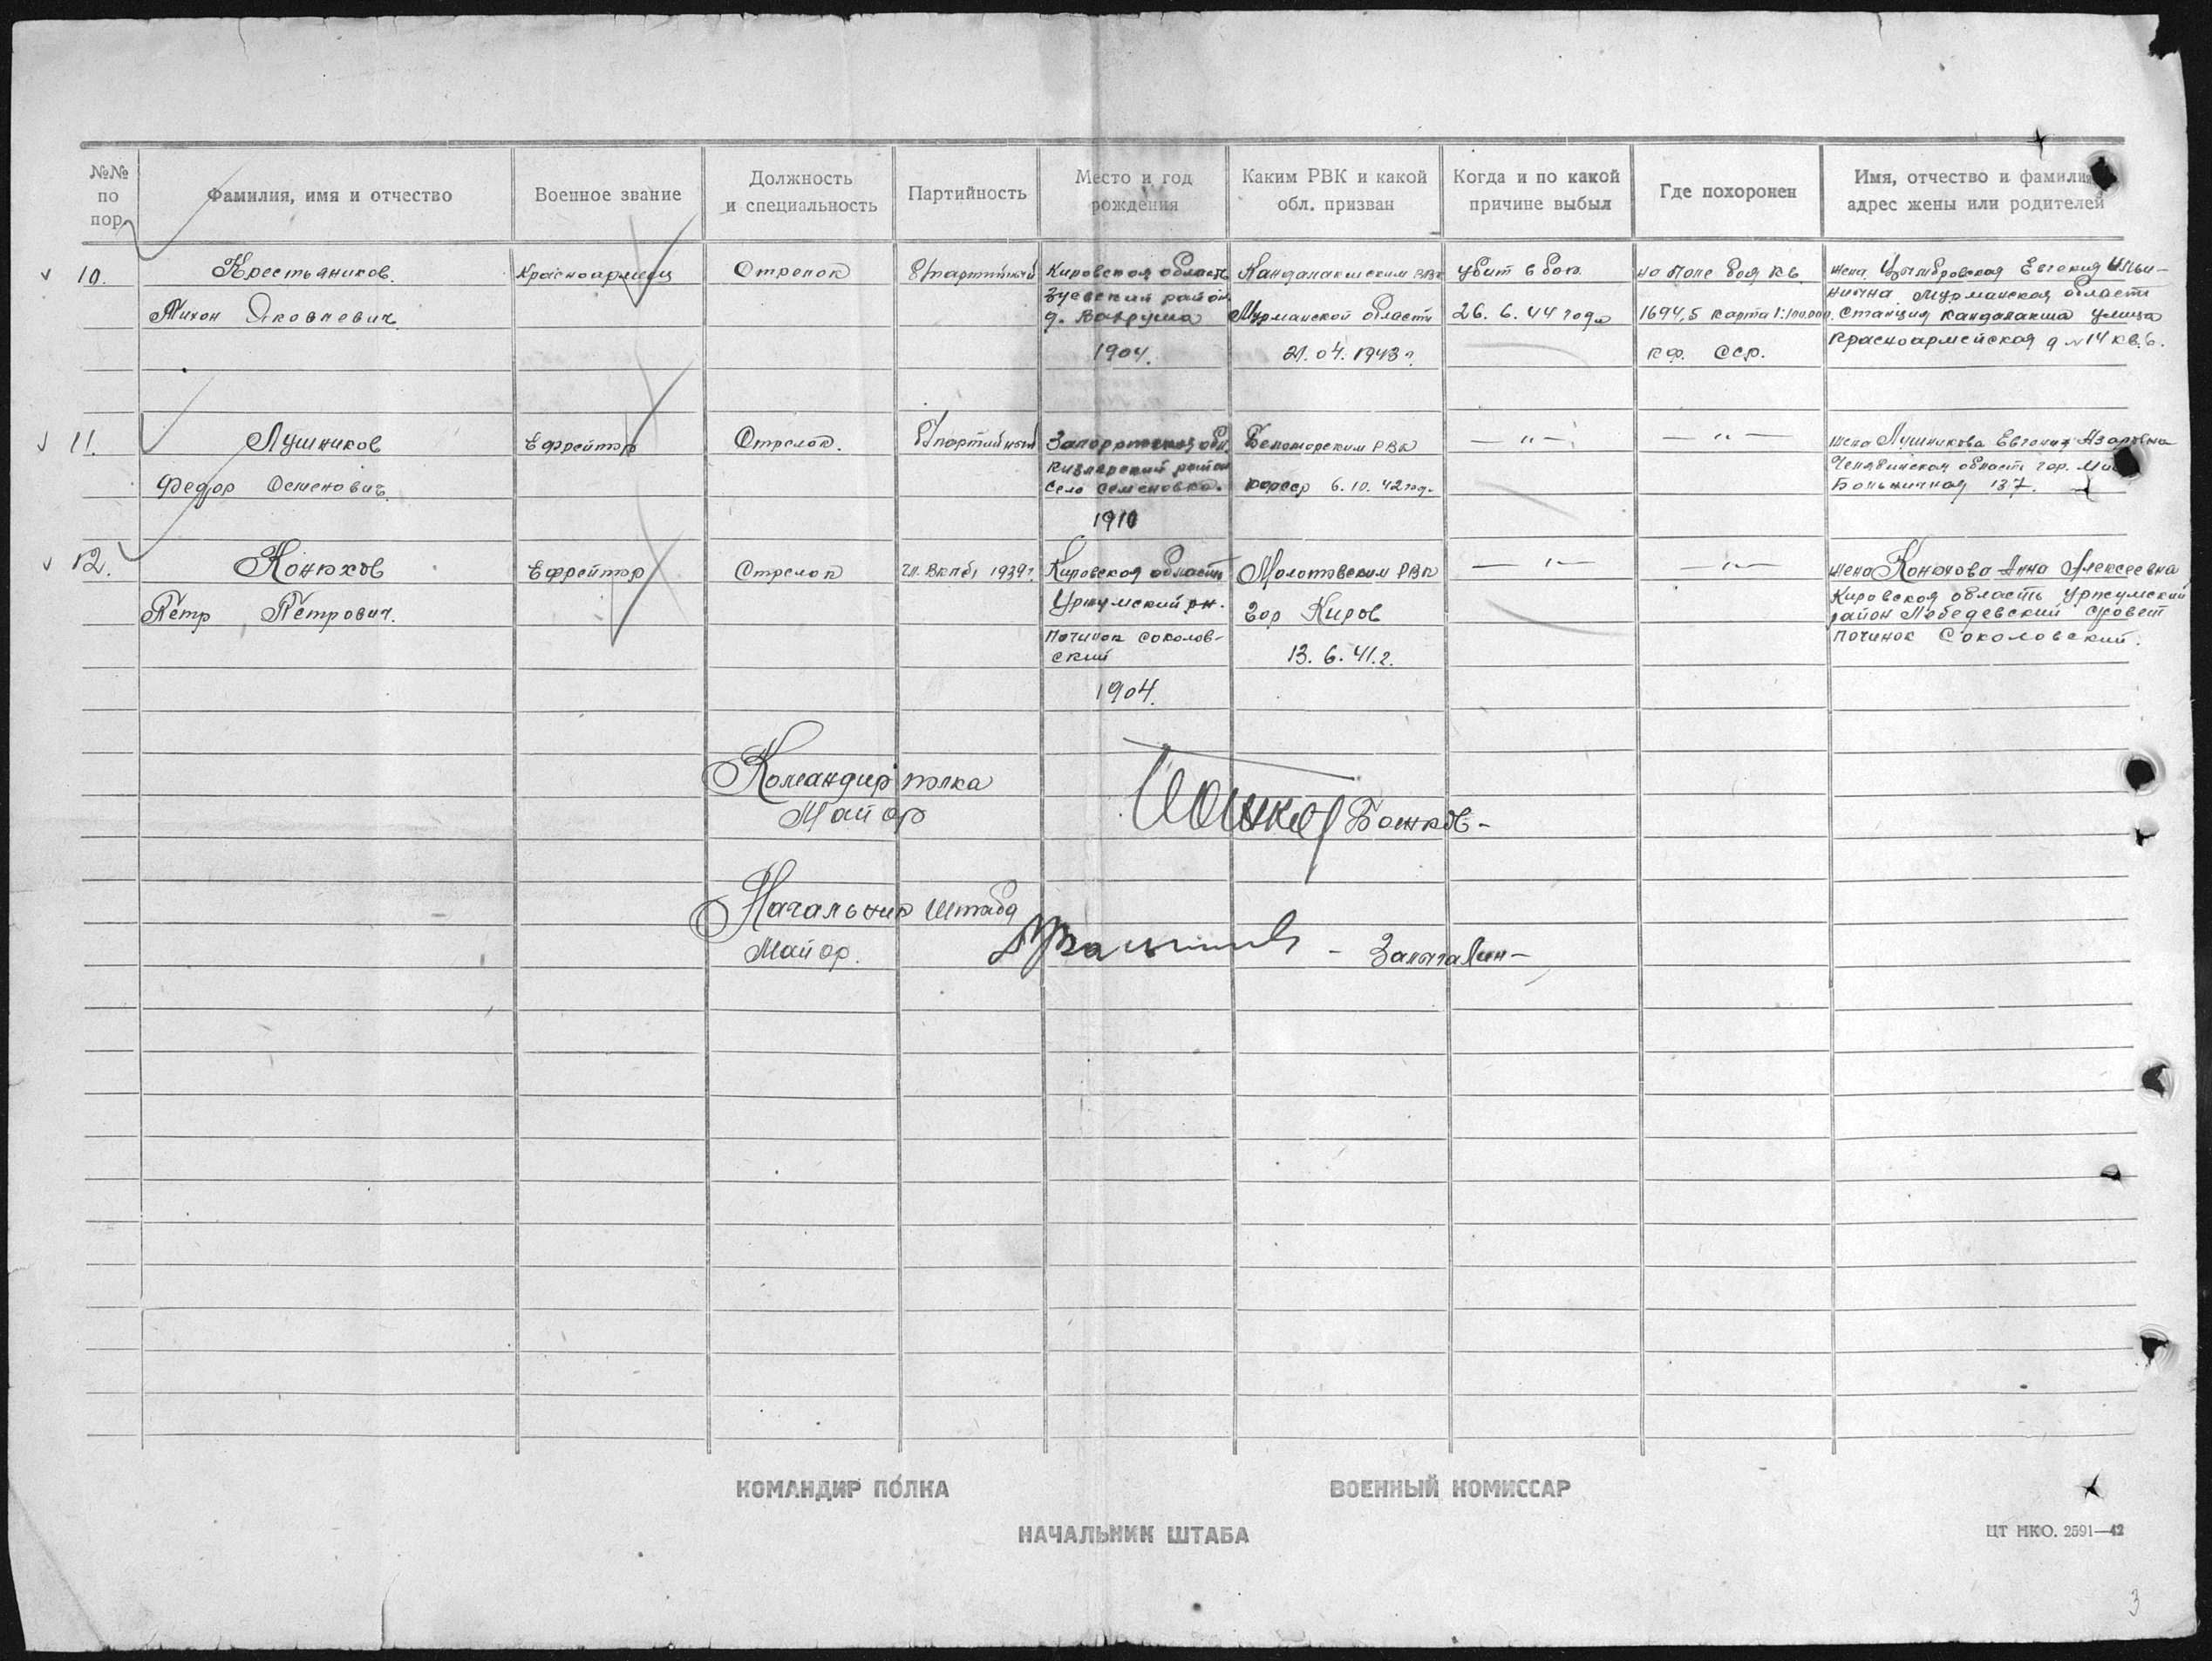 №№ по пор.
Фамилия, имя и отчество
Военное звание
Должность и специальность
Партийность
Место и год рождения
Каким РВК и какой обл. призван
Когда и по какой причине выбыл
Где похоронен
Имя, отчество и фамилия адрес жены или родителей
10.
Крестьяников.
Тихон Яковлевич
Красноармеец
Стрелок
б/партийный
Кировская область
Зуевский район
д. Вахруша
1904.
Кандалакшским РВК
Мурманской области
21.04.1943г
убит в бою
26.6.44 года
на поле боя кв.
1694,5 карта 1:100.000.
КФ. ССР.
жена Цымбровская Евгения Ильи-
нична Мурманская область
станция Кандалакша улица
Красноармейская д №14 кв.6.
11.
Лушников
Федор Семенович
Ефрейтор
Стрелок.
б/партийный
Запорожская обл.
район
село Семеновка.
1910
Беломорским РВК
КФССР 6.10.42год.
— " —
— " —
жена Лушникова Евгения Азаровна
Челябинская область гор.
Больничная 137.
12.
Конюхов
Петр Петрович.
Ефрейтор
Стрелок
чл. ВКПб, 1939г
Кировская область
Уржумский рн.
починок Соколов-
ский
1904.
Молотовским РВК
гор Киров
13.6.41.г.
— " —
— " —
жена Конюхова Анна Алексеевна
Кировская область Уржумский
район Лебедевский с/совет
починок Соколовский.
Командир полка
Майор
Божков-
Начальник штаба
Майор.
КОМАНДИР ПОЛКА
ВОЕННЫЙ КОМИССАР
НАЧАЛЬНИК ШТАБА
ЦТ НКО. 2591—42
3